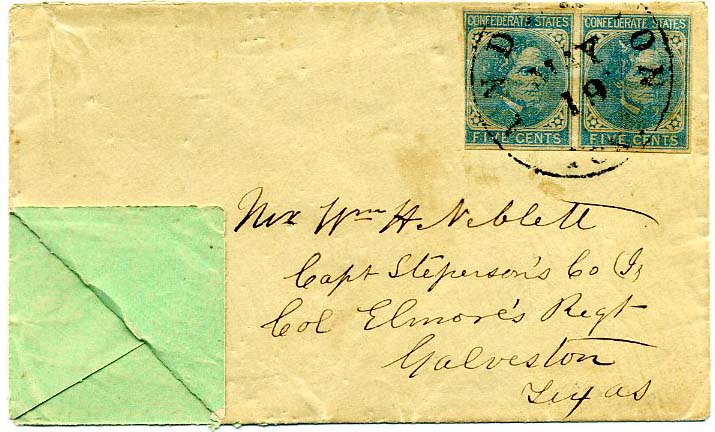 CONFEDERATE STATES CONFEDERATE STATES
FIVE CENTS FIVE CENTS
19
Wm H. Neblett
Capt Steperson's Co
Col Elmore's Regt
Galveston
Texas